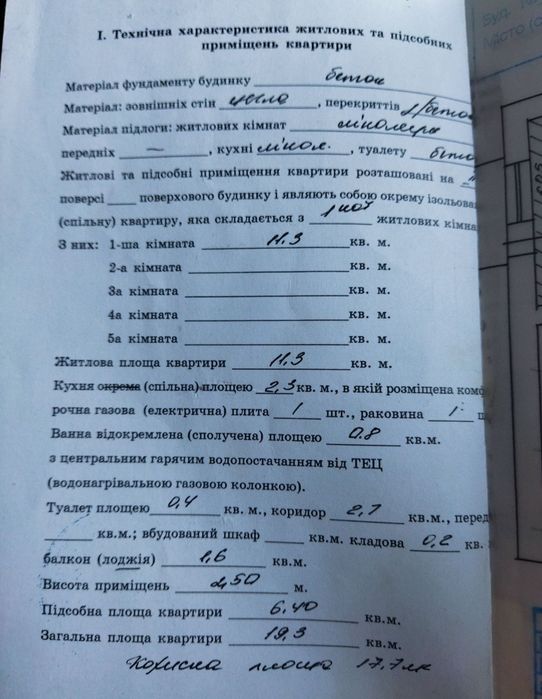 І. Технічна характеристика житлових та підсобних
приміщень квартири
Матеріал фундаменту будинку бетон
Матеріал: зовнішніх стін , перекриттів з/бетон
Матеріал підлоги: житлових кімнат лінолеум
передніх — , кухні лінол. , туалету бетон
Житлові та підсобні приміщення квартири розташовані на
поверсі ____ поверхового будинку і являють собою окрему ізольова
(спільну) квартиру, яка складається з 1-ної житлових кімна
З них: 1-ша кімната 11.3 кв. м.
2-а кімната ____ кв. м.
3а кімната ____ кв. м.
4а кімната ____ кв. м.
5а кімната ____ кв. м.
Житлова площа квартири 11.3 кв. м.
Кухня окрема (спільна) площею 2,3 кв. м., в якій розміщена комф
рочна газова (електрична) плита 1 шт., раковина 1
Ванна відокремлена (сполучена) площею 0.8 кв.м.
з центральним гарячим водопостачанням від ТЕЦ
(водонагрівальною газовою колонкою).
Туалет площею 0,4 кв. м., коридор 2,7 кв.м., перед
____ кв.м.; вбудований шкаф ____ кв.м. кладова 0,2 кв.
балкон (лоджія) 1,6 кв.м.
Висота приміщень 2,50 м.
Підсобна площа квартири 6,40 кв.м.
Загальна площа квартири 19,3 кв.м.
Корисна площа 17,7